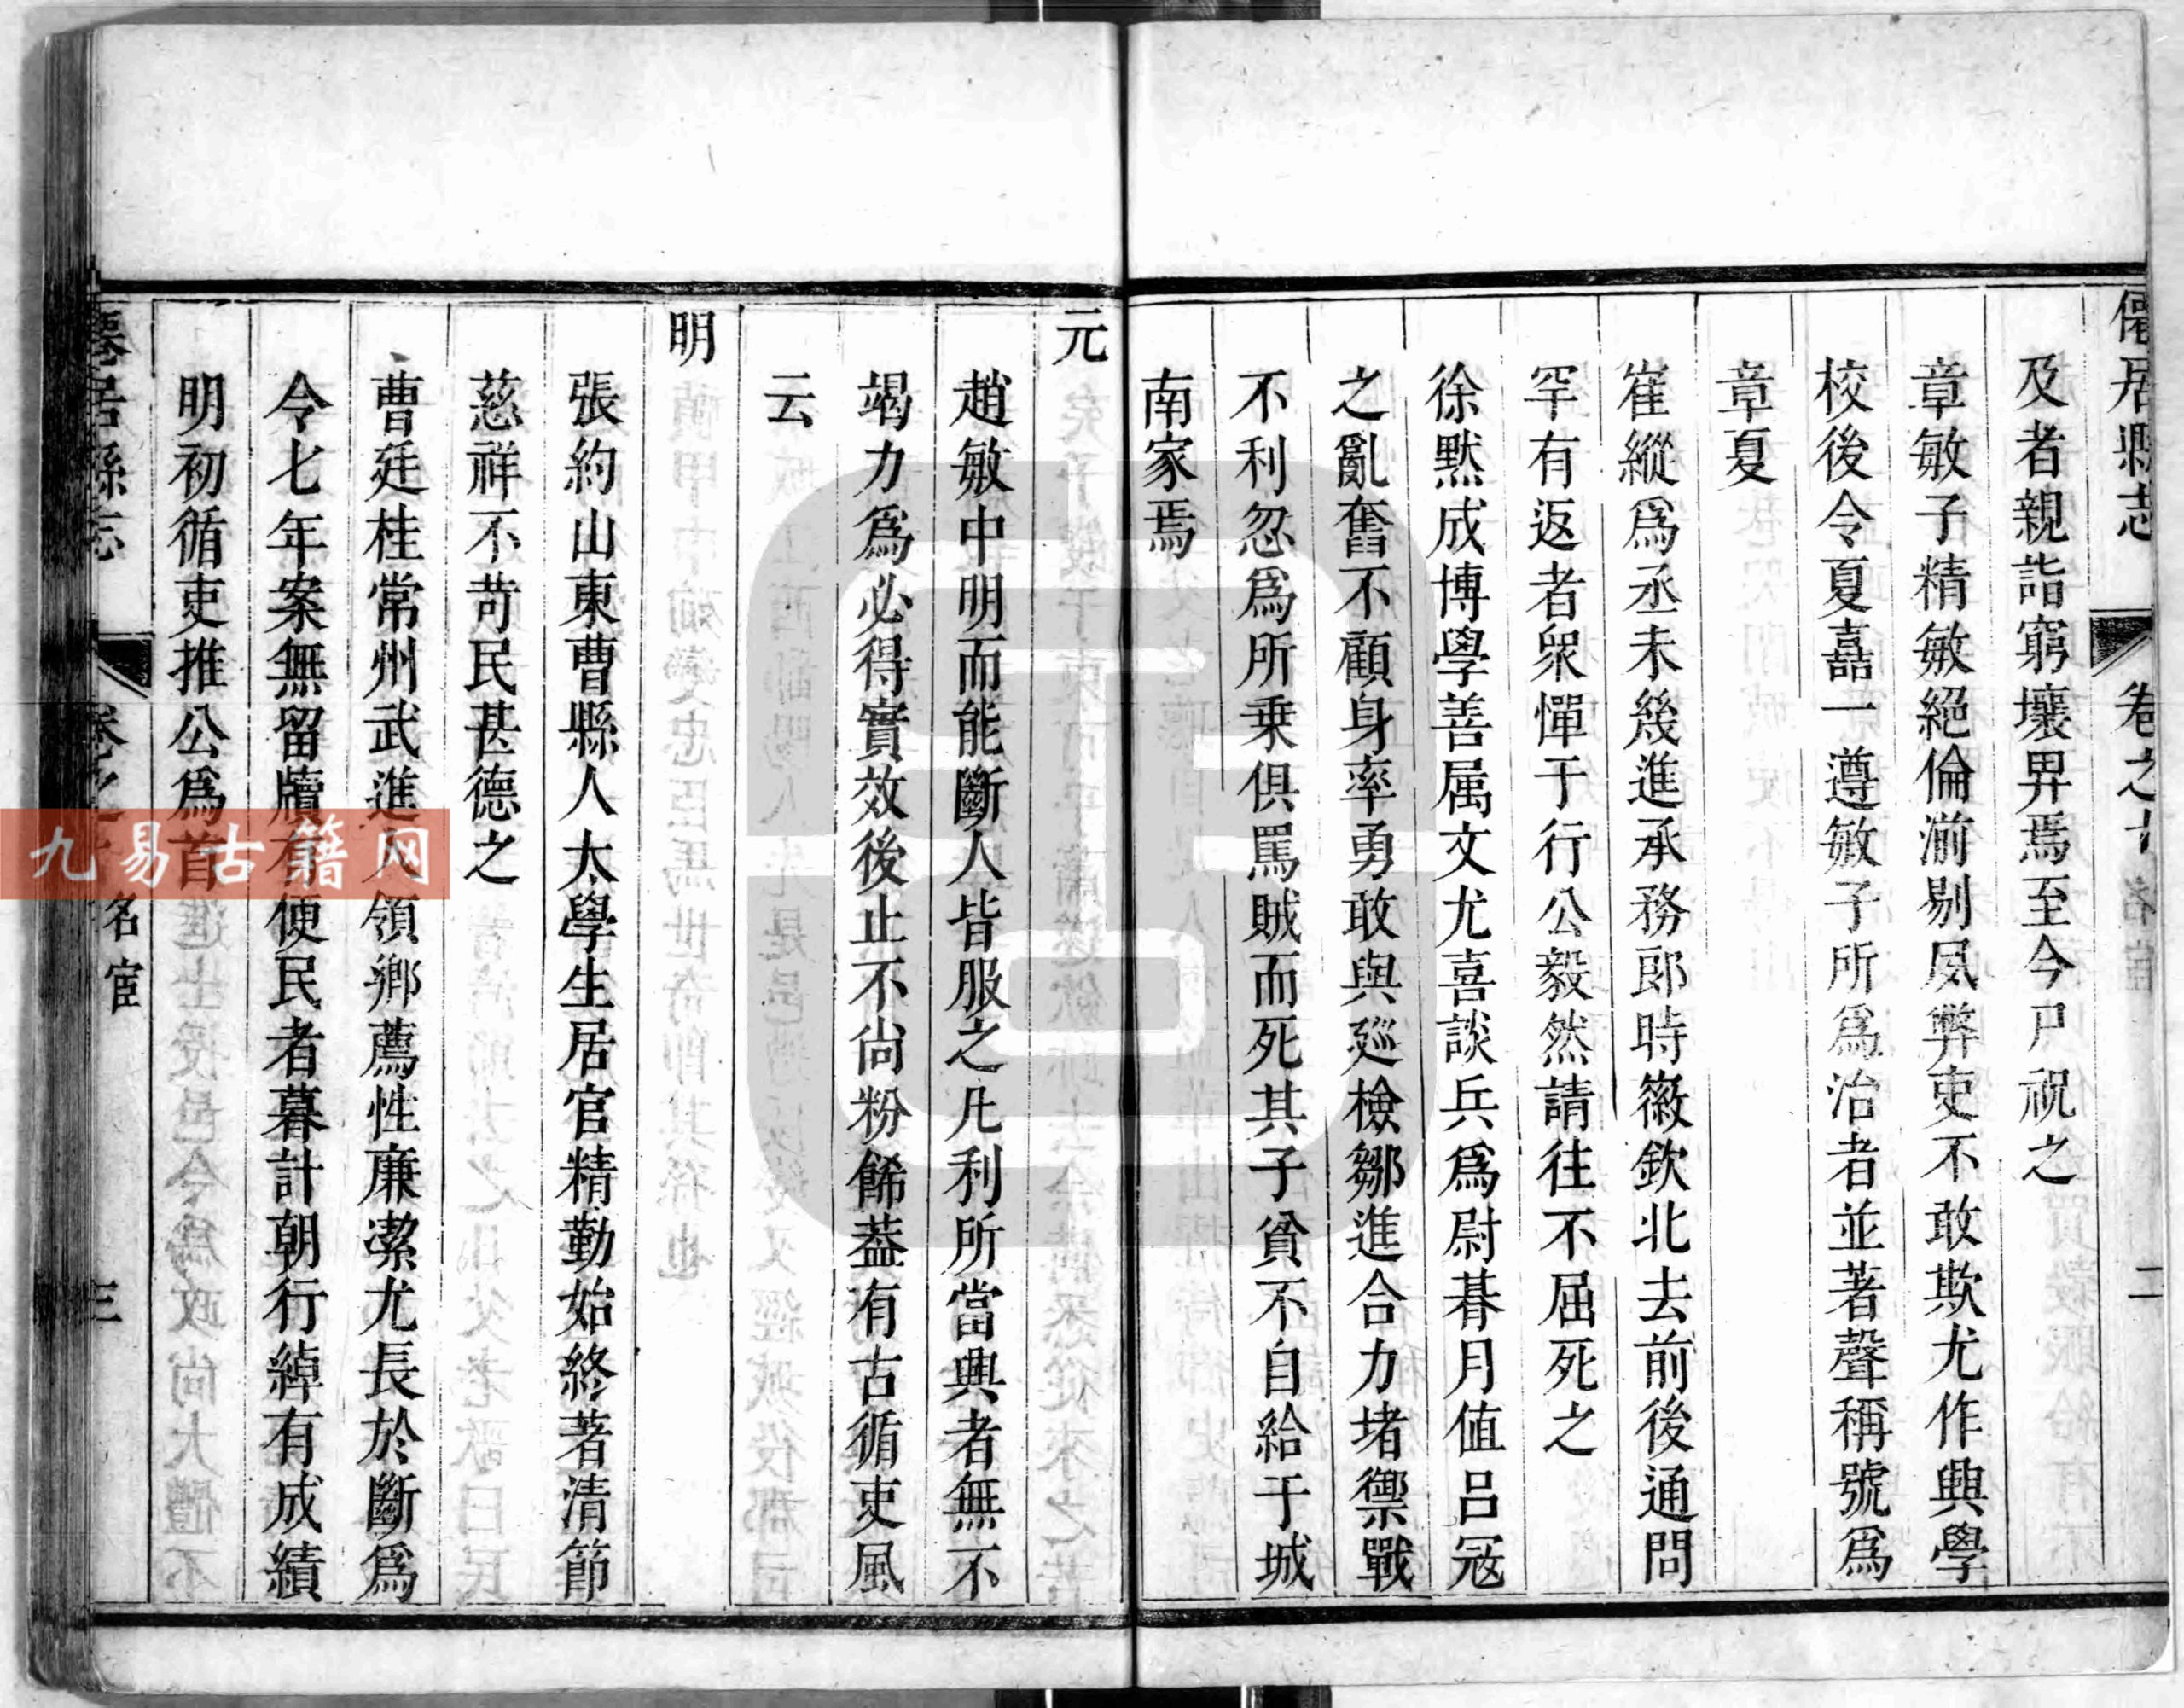 僊居縣志
卷之十
名宦
二
及者親詣窮壤畀焉至今尸祝之
章敏子精敏絕倫湔剔夙弊吏不敢欺尤作興學
校後令夏嚞一遵敏子所爲治者並著聲稱號爲
章夏
崔縱爲丞未幾進承務郎時徽欽北去前後通問
罕有返者衆憚于行公毅然請往不屈死之
徐默成博學善属文尤喜談兵爲尉朞月值呂冦
之亂奮不顧身率勇敢與廵檢鄒進合力堵禦戰
不利忽爲所乗俱罵賊而死其子貧不自給于城
南家焉
元
趙敏中明而能斷人皆服之凢利所當興者無不
竭力爲必得實效後止不尚粉餙葢有古循吏風
云
明
張約山東曹縣人太學生居官精勤始終著清節
慈祥不苛民甚德之
曹廷桂常州武進人領鄉薦性廉潔尤長於斷爲
令七年案無留牘有便民者暮計朝行綽有成績
明初循吏推公爲首
居縣志
名宦
三
九易古籍网